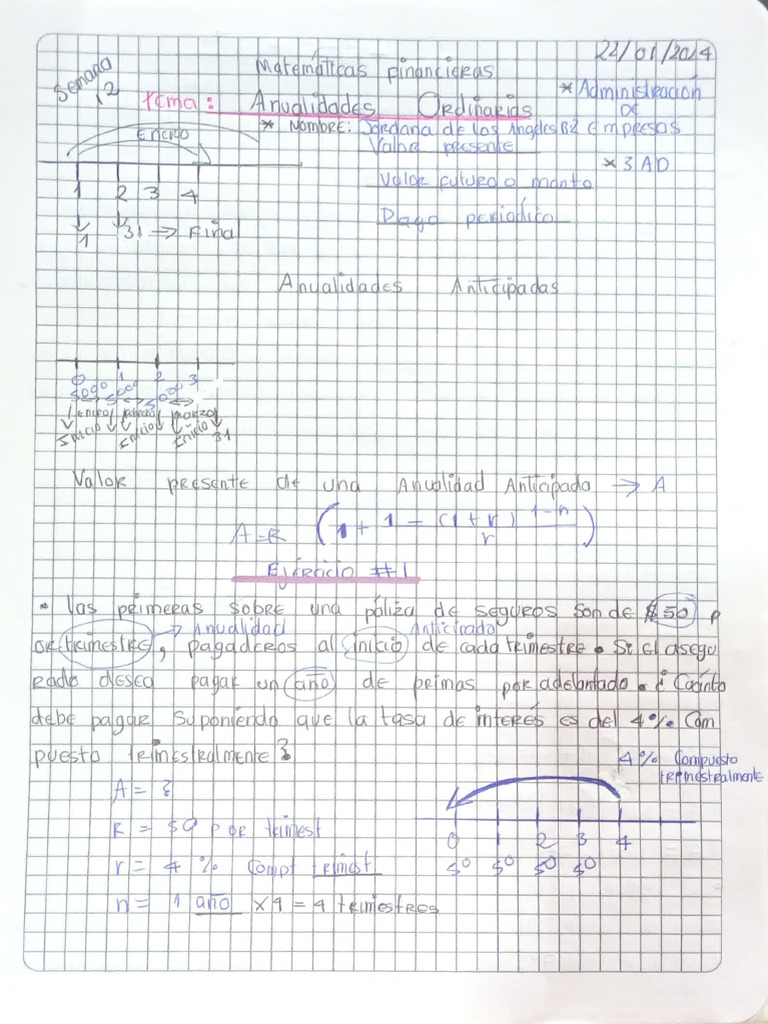 22/01/2024
Semana 12
Matemáticas financieras
Tema: Anualidades Ordinarias
* Administración de Empresas
* Nombre: Jordana de los Angeles B2
Enero
Valor presente
* 3 AD
Valor futuro o monto
1 2 3 4
Pago periodico
1 31 → Final
Anualidades Anticipadas
0 1 2 3
5000 5000 5000
Enero febrero marzo
Inicio Inicio Inicio 31
Valor presente de una Anualidad Anticipada → A
A=R (1 + 1 - (1+r)^1-n / r)
Ejercicio #1
• las primeras sobre una póliza de seguros son de $50 p
or trimestre, pagaderos al inicio de cada trimestre. Si el asegu
→ Anualidad Anticipada
rado desea pagar un año de primas por adelantado. ¿Cuánto
debe pagar suponiendo que la tasa de interés es del 4% Com
puesto trimestralmente?
4% Compuesto trimestralmente
A= ?
R = 50 por trimest
0 1 2 3 4
r= 4 % Compt trimest
50 50 50 50
n= 1 año x4 = 4 trimestres